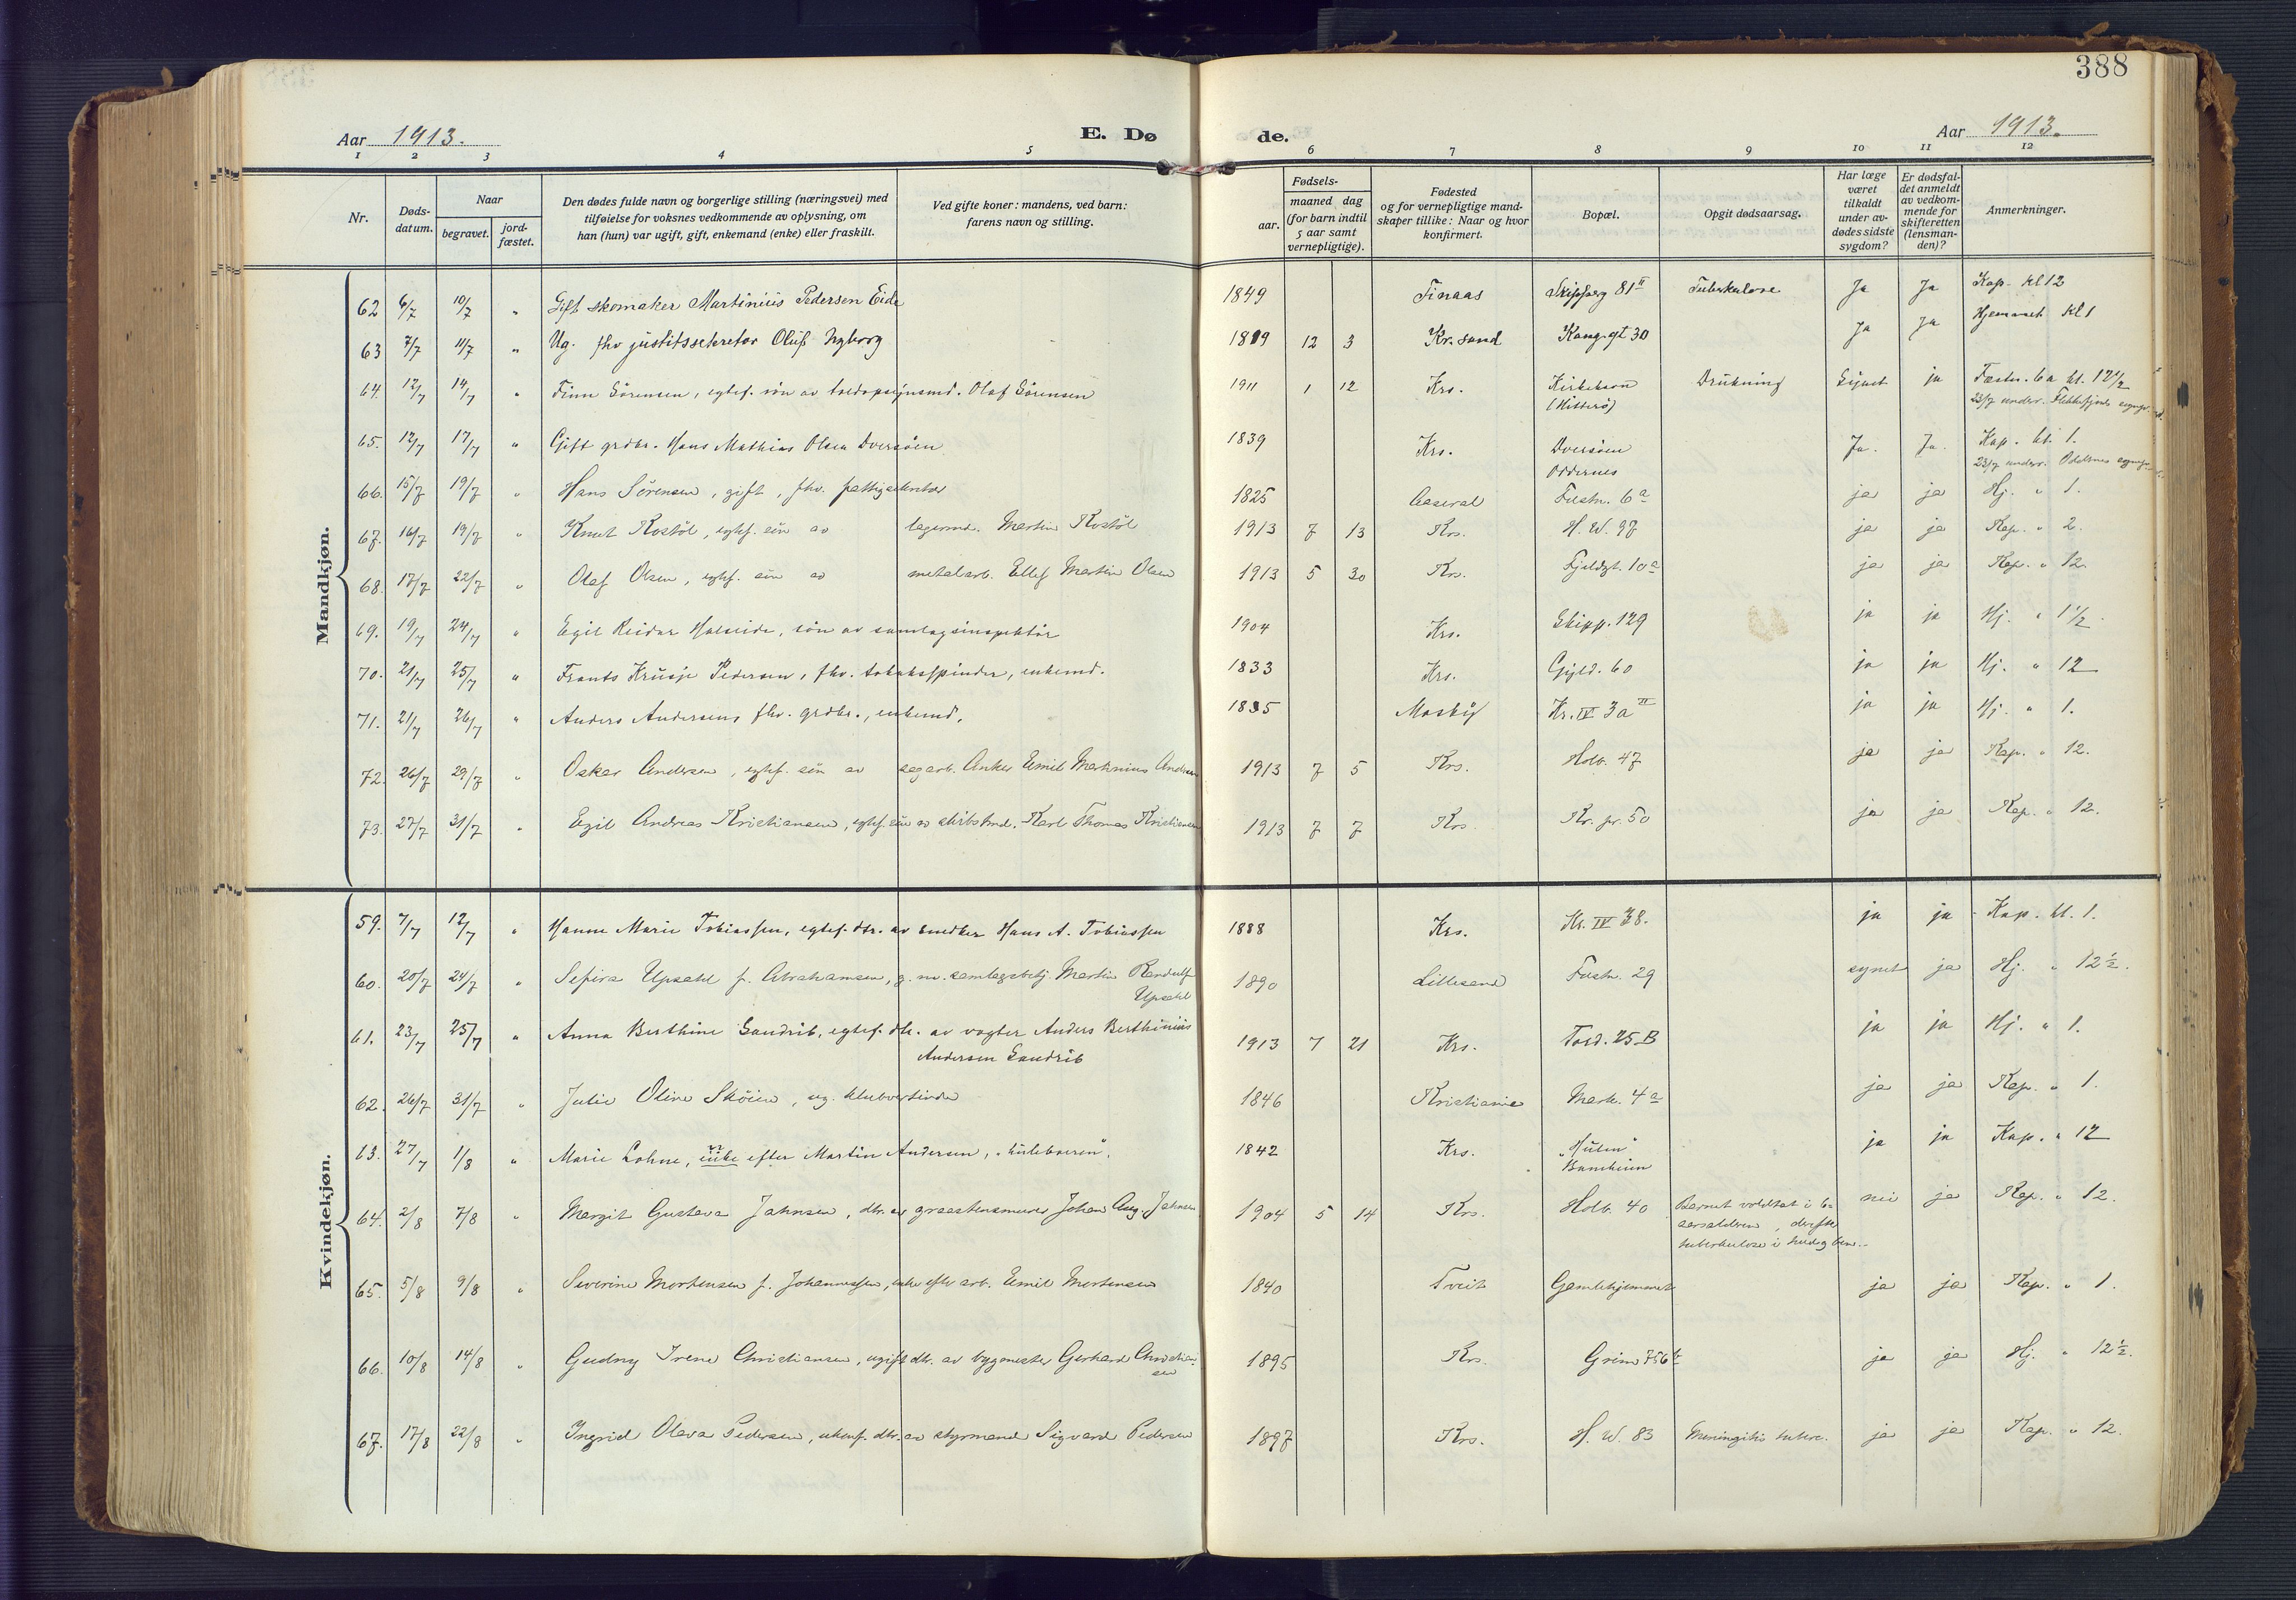 388
Aar 1913. E. Dø de. Aar 1913.
1 2 3 4 5 6 7 8 9 10 11 12
Nr.
Døds-
datum.
Naar
begravet.
jord-
fæstet.
Den dødes fulde navn og borgerlige stilling (næringsvei) med
tilføielse for voksnes vedkommende av oplysning, om
han (hun) var ugift, gift, enkemand (enke) eller fraskilt.
Ved gifte koner: mandens, ved barn:
farens navn og stilling.
Fødsels-
aar.
maaned dag
(for barn indtil
5 aar samt
vernepligtige).
Fødested
og for vernepligtige mand-
skaper tillike: Naar og hvor
konfirmert.
Bopæl.
Opgit dødsaarsag.
Har læge
været
tilkaldt
under av-
dødes sidste
sygdom?
Er dødsfal-
det anmeldt
av vedkom-
mende for
skifteretten
(lensman-
den)?
Anmerkninger.
Mandkjøn.
62 6/7 10/7 " Gift skomaker Martinius Pedersen Eide 1849 Finaas Skippserg 81 II Tuberkulose Ja Ja Kap. kl 12
63 7/7 11/7 " Ug. fhv justitssekretær Oluf Nyborg 1819 12 3 Kr.sand Kong.gt 30 Ja Ja Hjemmet kl 1
64. 12/7 14/7 " Finn Sørensen, egtef. søn av tredopsynsmd. Olaf Sørensen 1911 1 12 Krs. Kirkehavn Drukning Synet ja Fæstn. 6a kl. 12 1/2
(Hitterø) 23/7 underr. Flekkefjords sognepr.
65. 12/7 17/7 " Gift grdbr. Hans Mathias Olsen Dversøen 1839 Krs. Dversøen Ja. Ja. Kap. kl. 1.
Oddernes 23/7 underr. Oddernes sognepr.
66. 15/7 19/7 " Hans Sørensen, gift, fhv. fattigsekretær 1825 Aaseral Festn. 6a ja ja Hj. " 1.
67. 16/7 19/7 " Knut Rostøl, egtef. søn av lagermd. Martin Rostøl 1913 7 13 Krs. H. W. 97 ja ja Kap. " 2.
68. 17/7 22/7 " Olaf Olsen, egtef. søn av metalarb. Ellef Martin Olsen 1913 5 30 Krs. Fjeldgt. 10a ja ja Kap. " 12.
69. 19/7 24/7 " Egil Reidar Halseide, søn av samlagsinspektør 1904 Krs. Skipp. 129 ja ja Hj. " 1 1/2.
70. 21/7 25/7 " Frants Krusje Pedersen, fhv. tobaksspinder, enkemd. 1833 Krs. Gyld. 60 ja ja Hj. " 12
71. 21/7 26/7 " Anders Andersens fhv. grdbr., enkemd. 1835 Mosby Kr. IV 3a II ja ja Hj. " 1.
72. 26/7 29/7 " Oskar Andersen, egtef. søn av sagarb. Anker Emil Martinius Andersen 1913 7 5 Krs. Holb. 47 ja ja Kap. " 12.
73. 27/7 31/7 " Egil Andreas Kristiansen, egtef. søn av skibstmd. Karl Thomas Kristiansen 1913 7 7 Krs. Kr. pr. 50 ja ja Kap. " 12.
Kvindekjøn.
59. 7/7 12/7 " Hanne Marie Tobiassen, egtef. dtr. av snedker Hans A. Tobiassen 1888 Krs. Kr. IV 38. ja ja Kap. kl. 1.
60. 20/7 24/7 " Sefira Upsahl f. Abrahamsen, g. m. samlagsbetj. Martin Randulf 1890 Lillesand Festn. 29 synet ja Hj. " 12 1/2.
Upsahl
61. 23/7 25/7 " Anna Berthine Sandrib, egtef. dtr. av vogter Anders Berthinius 1913 7 21 Krs. Tord. 25 B ja ja Hj. " 1.
Andersen Sandrib
62. 26/7 31/7 " Julie Oline Skøien, ug. klubvertinde 1846 Kristiania Mark. 4a ja ja Kap. " 1.
63. 27/7 1/8 " Marie Lohne, enke efter Martin Andersen, 1842 Krs. "Hulen" ja ja Kap. " 12
Baneheien
64. 2/8 7/8 " Margit Gustava Jahnsen, dtr. av graastensmurer Johan Aug. Jahnsen 1904 5 14 Krs. Holb. 40 Barnet voldtat i 6- nei ja Kap. " 12.
aarsalderen, derefter
tuberkulose i hud og ben.
65. 5/8 9/8 " Severine Mortensen f. Johannessen, enke efter arb. Emil Mortensen 1840 Tveit Gamlehjemmet ja ja Kap. " 1.
66. 10/8 14/8 " Gudny Irene Christiansen, ugift dtr. av bygmester Gerhard Christian- 1895 Krs. Grim 756b ja ja Hj. " 12 1/2.
sen
67. 17/8 22/8 " Ingrid Olava Pedersen, ukonf. dtr. av styrmand Sigvard Pedersen 1897 Krs. H. W. 83 Meningitis tuberc. ja ja Kap. " 12.